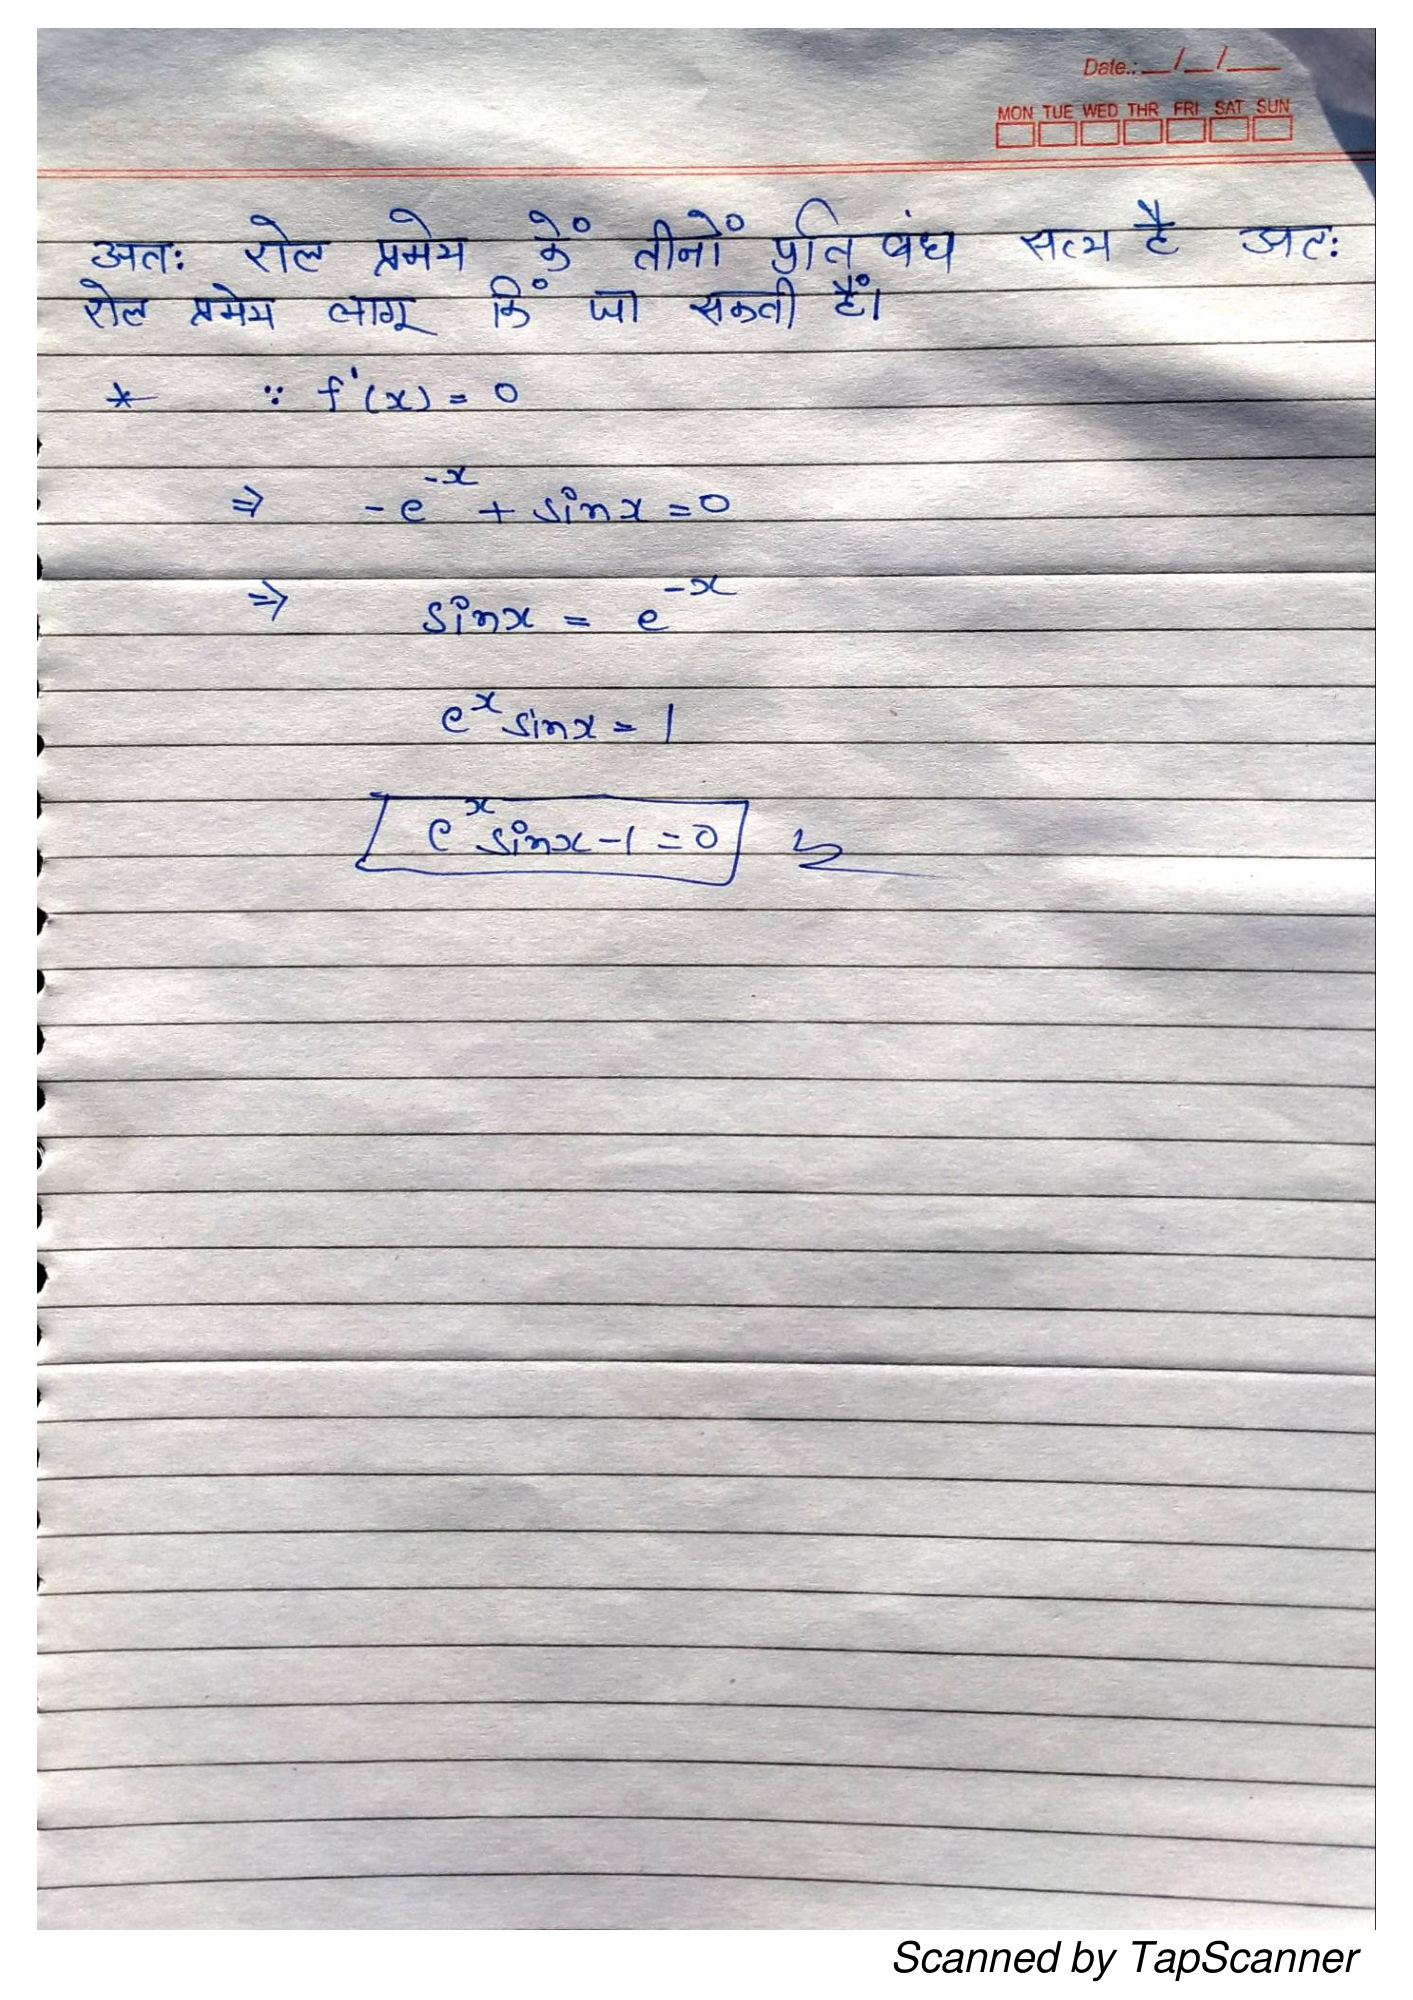 Date.: __/__/____
MON TUE WED THR FRI SAT SUN
अतः रोल प्रमेय कें तीनों प्रतिबंध सत्य है अतः
रोल प्रमेय लागू किं जा सकती हैं।
* ∵ f'(x) = 0
⇒ -e^{-x} + sinx = 0
⇒ sinx = e^{-x}
e^x sinx = 1
e^x sinx - 1 = 0
Scanned by TapScanner